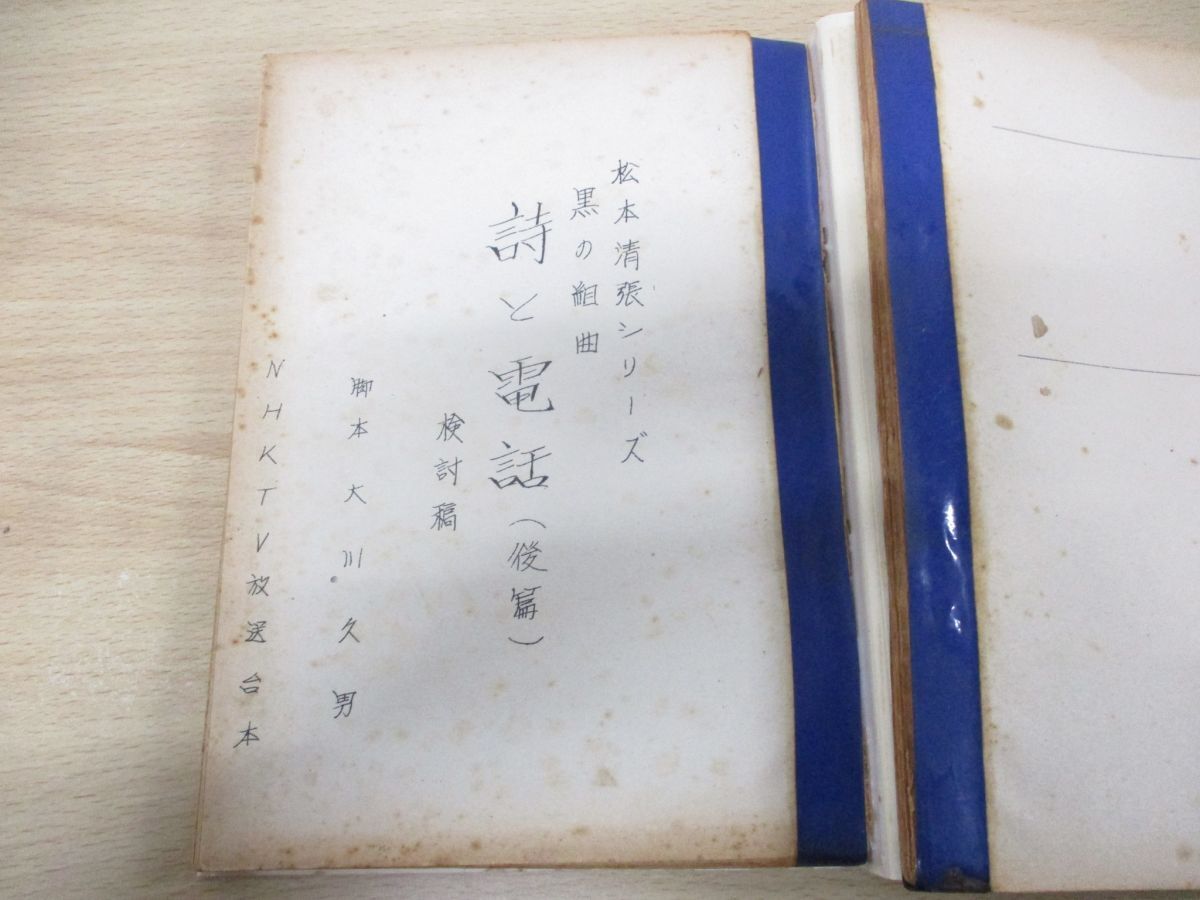 松本清張シリーズ
黒の組曲
詩と電話(後篇)
検討稿
脚本 大川久男
NHKTV放送台本